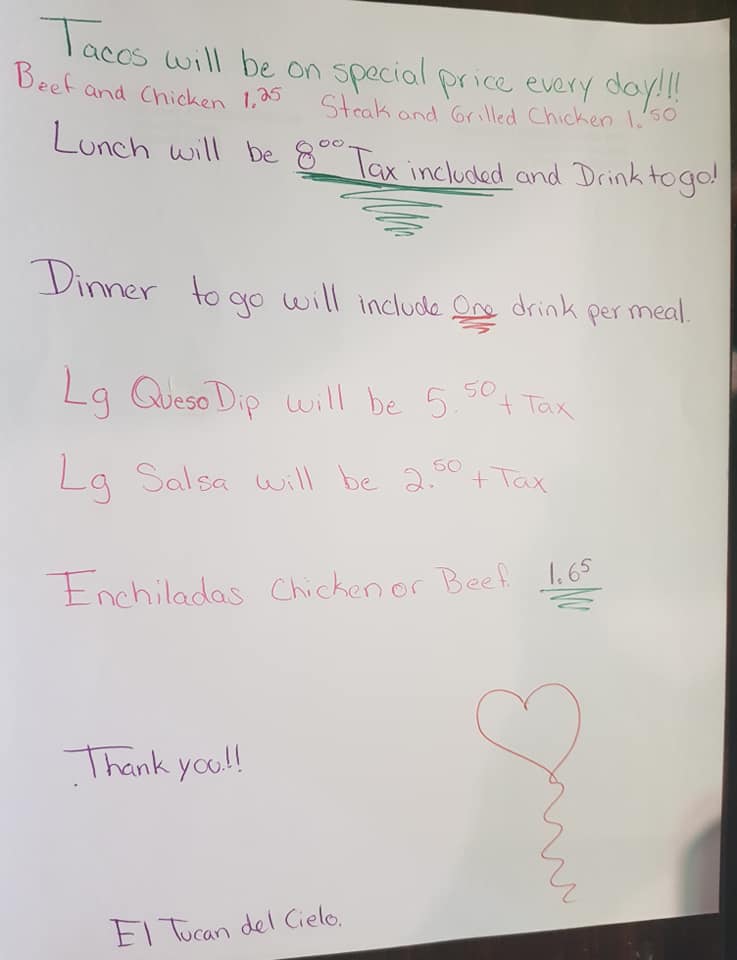 Tacos will be on special price every day!!!
Beef and Chicken 1.25 Steak and Grilled Chicken 1.50
Lunch will be 8.00 Tax included and Drink to go!
Dinner to go will include One drink per meal.
Lg Queso Dip will be 5.50 + Tax
Lg Salsa will be 2.50 + Tax
Enchiladas Chicken or Beef. 1.65
Thank you!!
El Tucan del Cielo.